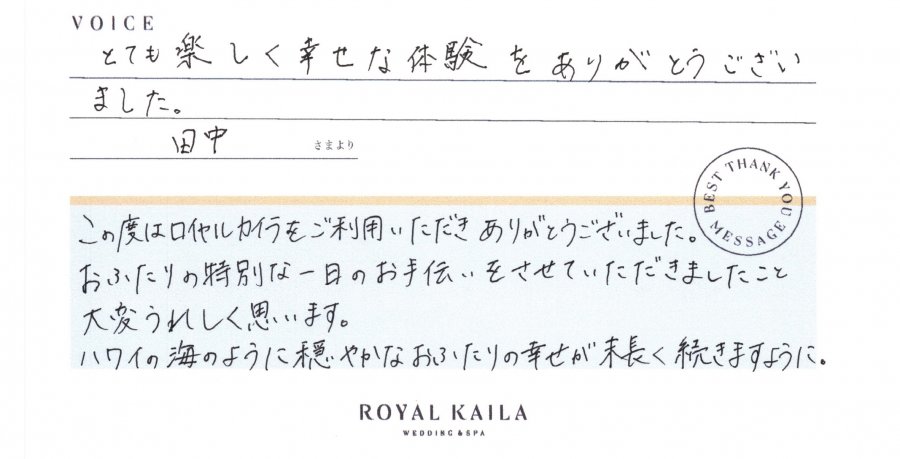 VOICE
とても楽しく幸せな体験をありがとうござい
ました。
田中 さまより
BEST THANK YOU MESSAGE
この度はロイヤルカイラをご利用いただきありがとうございました。
おふたりの特別な一日のお手伝いをさせていただきましたこと
大変うれしく思います。
ハワイの海のように穏やかなおふたりの幸せが末長く続きますように。
ROYAL KAILA
WEDDING & SPA